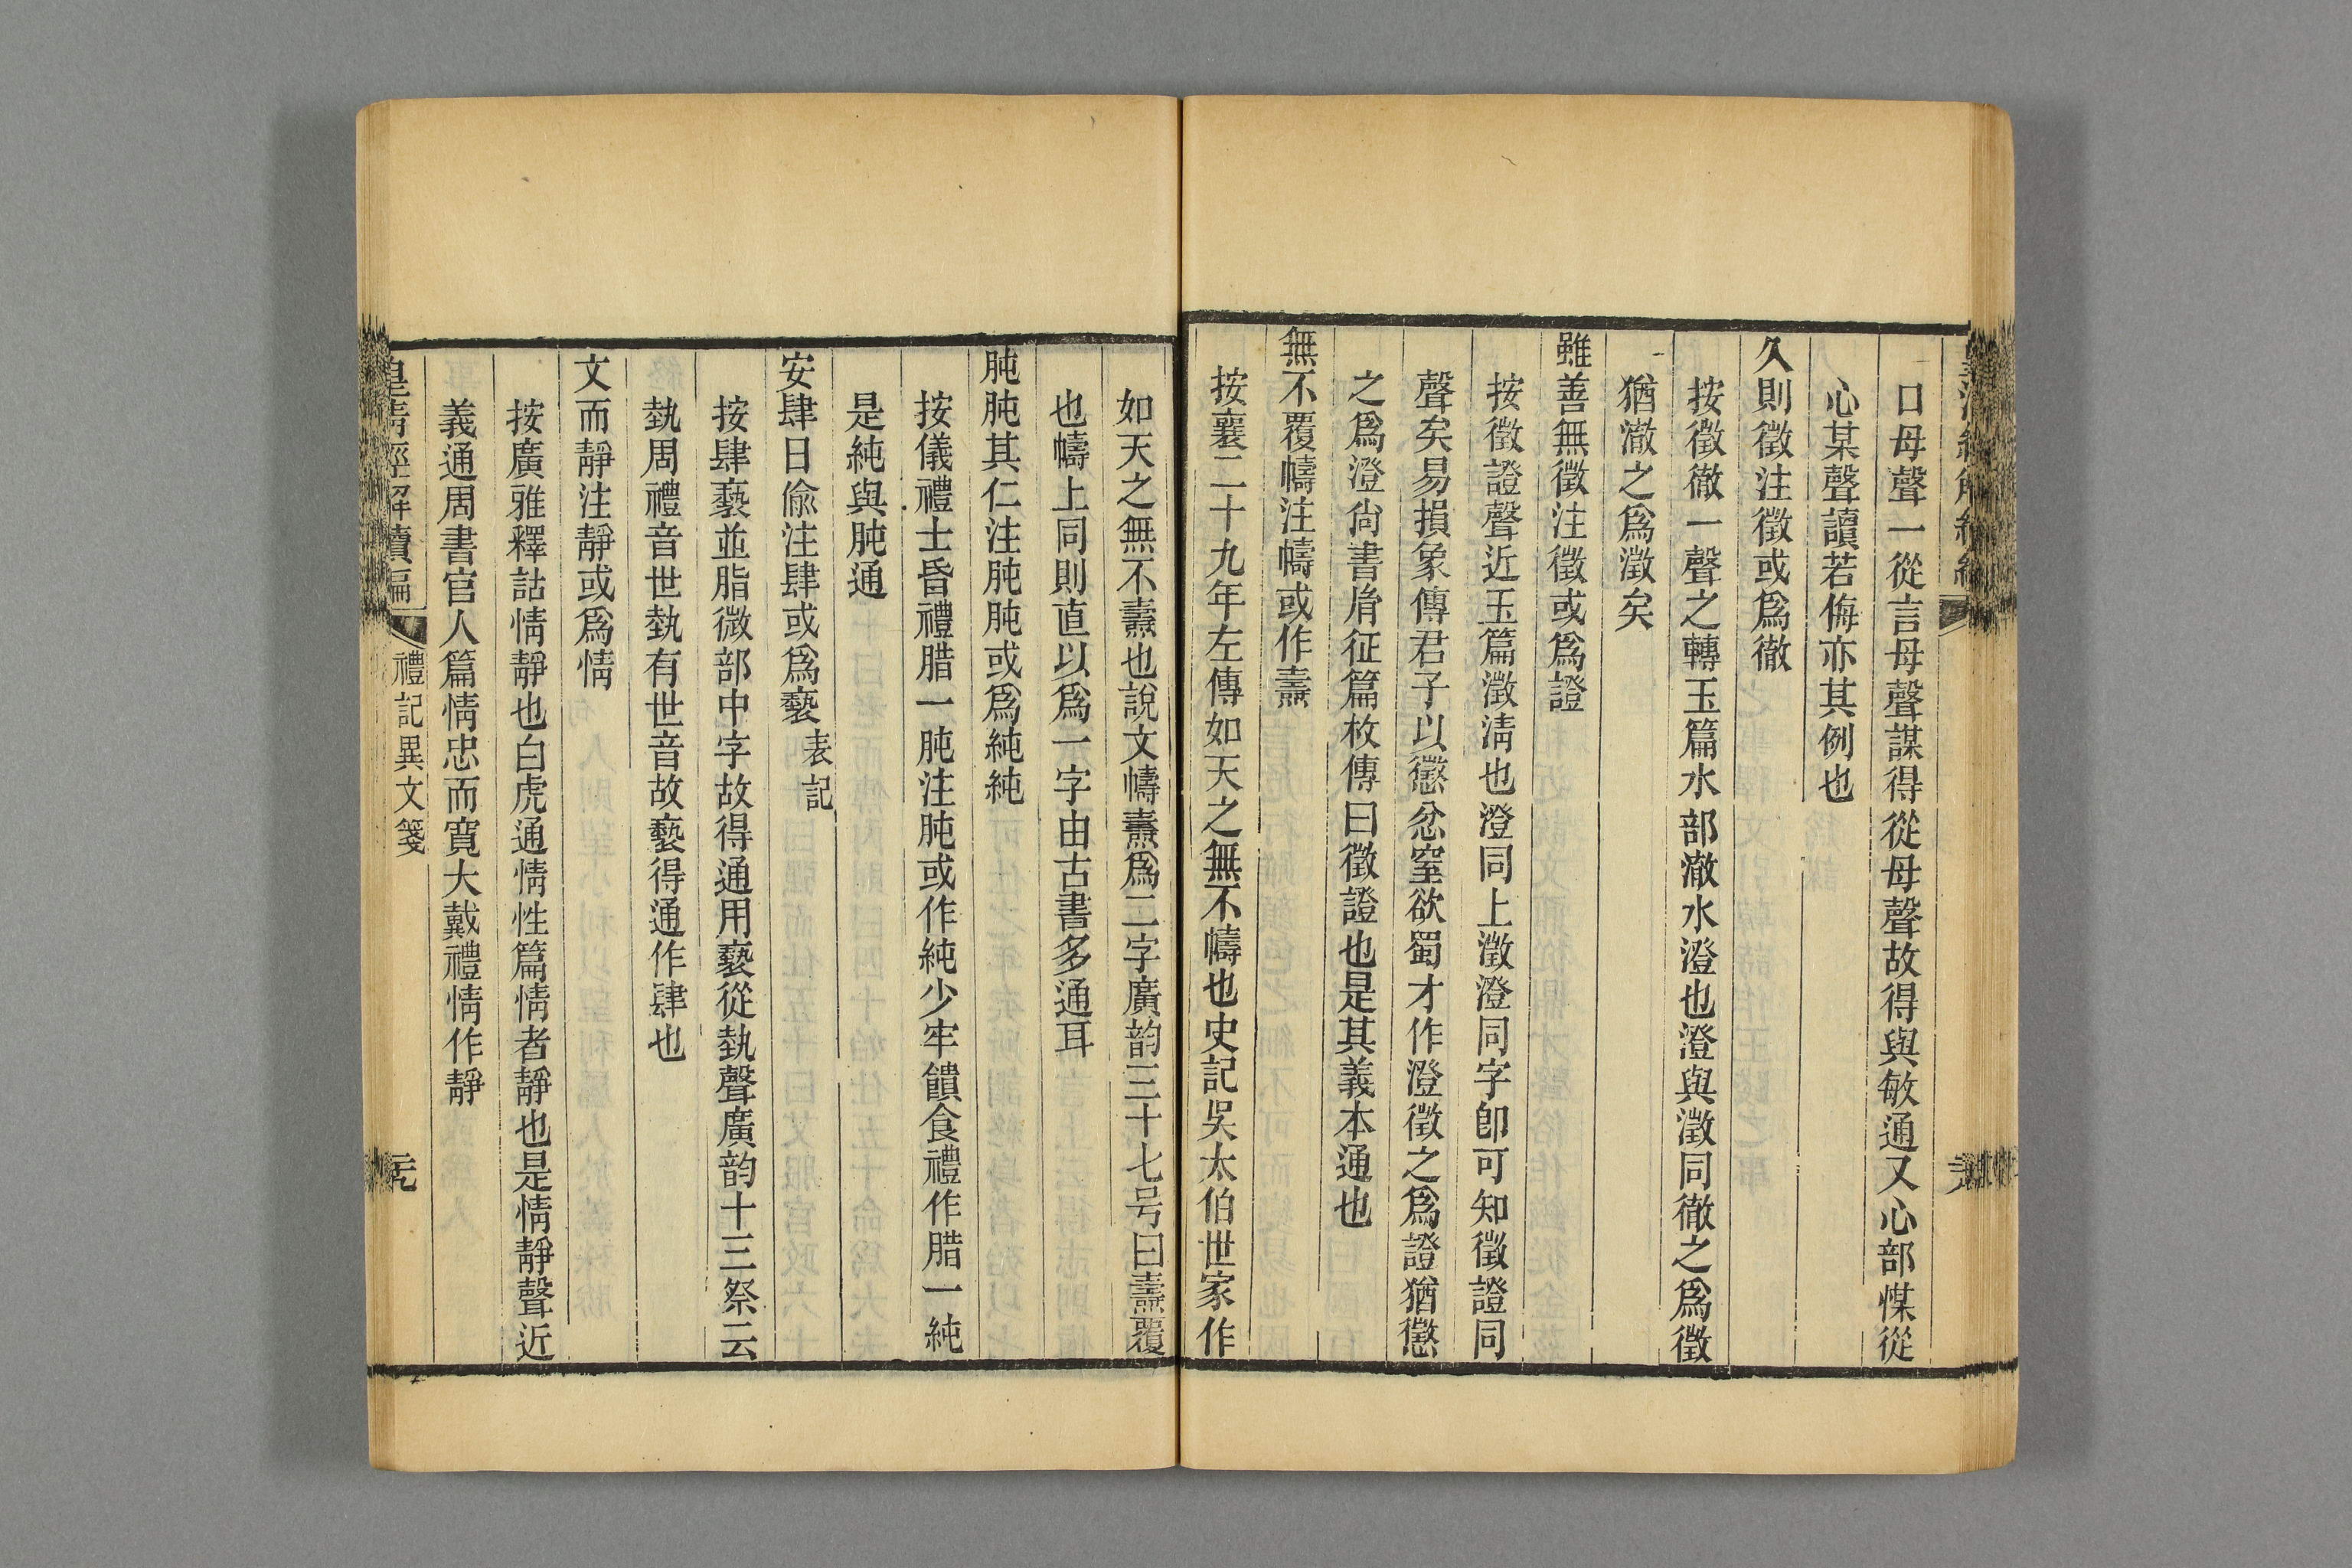 口母聲一從言母聲謀得從母聲故得與敏通又心部㥣從
心某聲讀若侮亦其例也
久則徵注徵或爲徹
按徵徹一聲之轉玉篇水部澈水澄也澄與澂同徹之爲徵
猶澈之爲澂矣
雖善無徵注徵或爲證
按徵證聲近玉篇澂淸也澄同上澂澄同字卽可知徵證同
聲矣易損象傳君子以懲忿窒欲蜀才作澄徵之爲證猶懲
之爲澄尙書㣧征篇枚傳曰徵證也是其義本通也
無不覆幬注幬或作燾
按襄二十九年左傳如天之無不幬也史記吳太伯世家作
如天之無不燾也說文幬燾爲二字廣韵三十七号曰燾覆
也幬上同則直以爲一字由古書多通耳
肫肫其仁注肫肫或爲純純
按儀禮士昏禮腊一肫注肫或作純少牢饋食禮作腊一純
是純與肫通
安肆日偷注肆或爲褻 表記
按肆褻並脂微部中字故得通用褻從埶聲廣韵十三祭云
埶周禮音世埶有世音故褻得通作肆也
文而靜注靜或爲情
按廣雅釋詁情靜也白虎通情性篇情者靜也是情靜聲近
義通周書官人篇情忠而寬大戴禮情作靜
皇淸經解續編 禮記異文箋